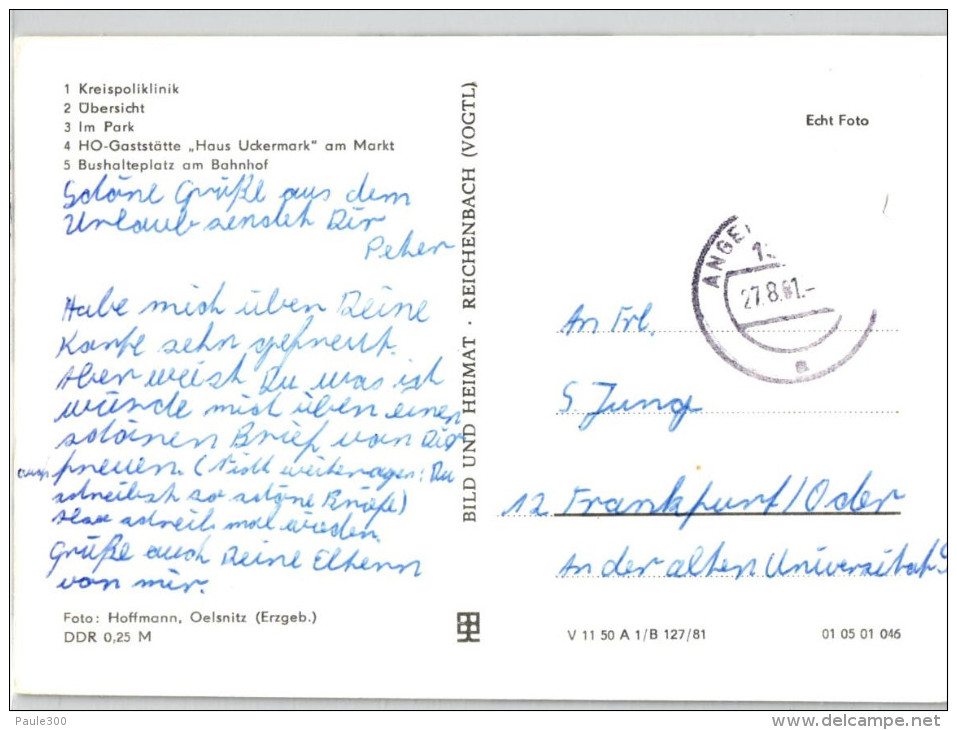 1 Kreispoliklinik
2 Übersicht
3 Im Park
4 HO-Gaststätte „Haus Uckermark" am Markt
5 Bushalteplatz am Bahnhof
Schöne Grüße aus dem
Urlaub sendet Dir
Peter
Habe mich über Deine
Karte sehr gefreut.
Aber weist Du was ich
würde mich über einen
schönen Brief von Dir
auch freuen. (Nicht weitersagen: Du
schreibst so schöne Briefe)
Also schreib mal wieder.
Grüße auch Deine Eltern
von mir.
Foto: Hoffmann, Oelsnitz (Erzgeb.)
DDR 0,25 M
BILD UND HEIMAT · REICHENBACH (VOGTL)
Echt Foto
ANGE
27.8.81.-
a
An Frl.
S. Jung
12 Frankfurt/Oder
An der alten Universität 9
V 11 50 A 1/B 127/81
01 05 01 046
Paule300
www.delcampe.net